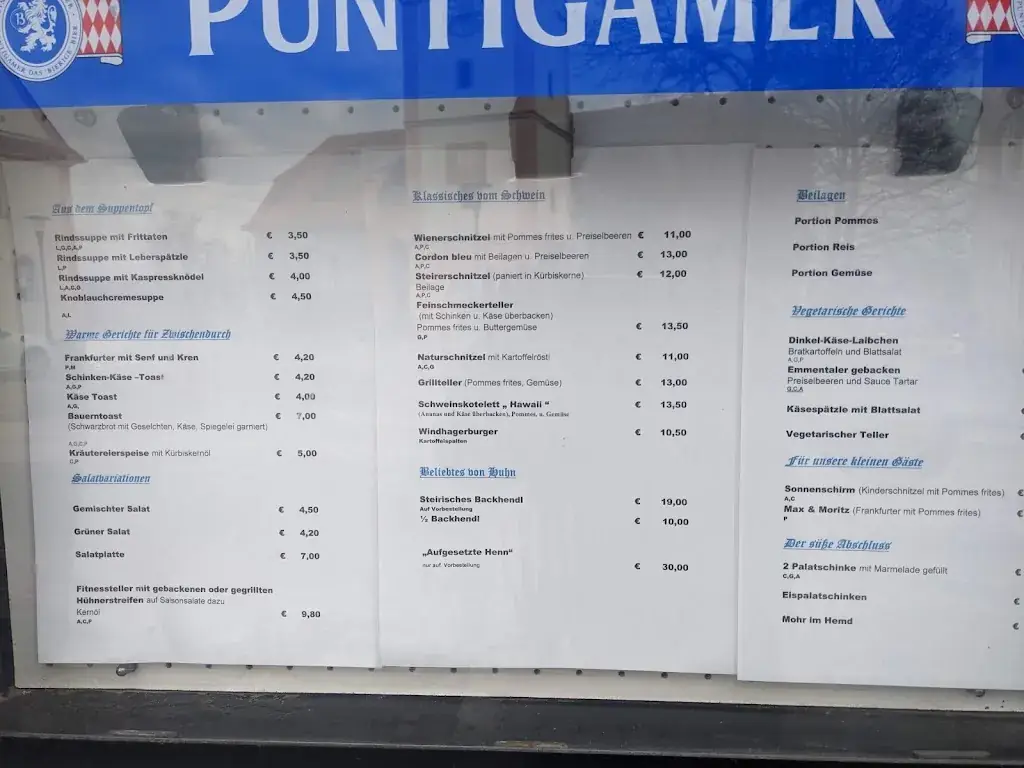 PUNTIGAMER
Aus dem Suppentopf
Rindssuppe mit Frittaten € 3,50
L,G,C,A,F
Rindssuppe mit Leberspätzle € 3,50
L,P
Rindssuppe mit Kaspressknödel € 4,00
L,A,C,G
Knoblauchcremesuppe € 4,50
A,L
Warme Gerichte für Zwischendurch
Frankfurter mit Senf und Kren € 4,20
P,M
Schinken-Käse –Toast € 4,20
A,G,P
Käse Toast € 4,00
A,G,
Bauerntoast € 7,00
(Schwarzbrot mit Geselchten, Käse, Spiegelei garniert)
A,G,C,P
Kräutereierspeise mit Kürbiskernöl € 5,00
C,P
Salatvariationen
Gemischter Salat € 4,50
Grüner Salat € 4,20
Salatplatte € 7,00
Fitnessteller mit gebackenen oder gegrillten
Hühnerstreifen auf Saisonsalate dazu
Kernöl € 9,80
A,C,F
Klassisches vom Schwein
Wienerschnitzel mit Pommes frites u. Preiselbeeren € 11,00
A,P,C
Cordon bleu mit Beilagen u. Preiselbeeren € 13,00
A,P,C
Steirerschnitzel (paniert in Kürbiskerne) € 12,00
Beilage
A,P,C
Feinschmeckerteller
(mit Schinken u. Käse überbacken)
Pommes frites u. Buttergemüse € 13,50
G,P
Naturschnitzel mit Kartoffelrösti € 11,00
A,C,G
Grillteller (Pommes frites, Gemüse) € 13,00
Schweinskotelett „ Hawaii “ € 13,50
(Ananas und Käse überbacken), Pommes, u. Gemüse
Windhagerburger € 10,50
Kartoffelspalten
Beliebtes von Huhn
Steirisches Backhendl € 19,00
Auf Vorbestellung
½ Backhendl € 10,00
„Aufgesetzte Henn“
nur auf. Vorbestellung € 30,00
Beilagen
Portion Pommes
Portion Reis
Portion Gemüse
Vegetarische Gerichte
Dinkel-Käse-Laibchen
Bratkartoffeln und Blattsalat
A,G,P
Emmentaler gebacken €
Preiselbeeren und Sauce Tartar
G,C,A
Käsespätzle mit Blattsalat €
Vegetarischer Teller €
Für unsere kleinen Gäste
Sonnenschirm (Kinderschnitzel mit Pommes frites) €
A,C
Max & Moritz (Frankfurter mit Pommes frites) €
P
Der süße Abschluss
2 Palatschinke mit Marmelade gefüllt €
C,G,A
Eispalatschinken €
Mohr im Hemd €